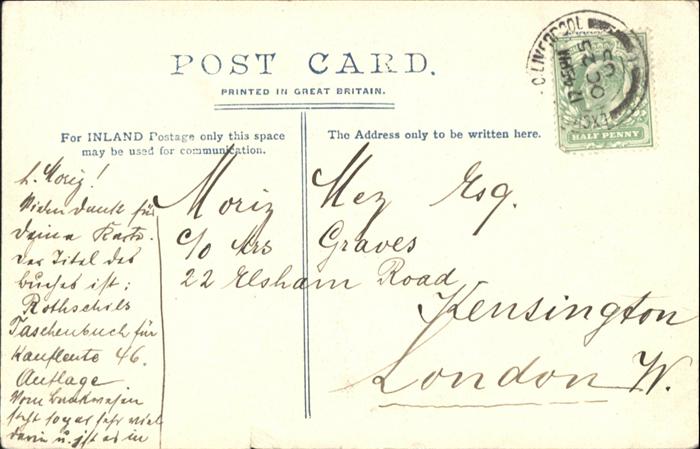 POST CARD.
PRINTED IN GREAT BRITAIN.
For INLAND Postage only this space
may be used for communication.
The Address only to be written here.
LIVERPOOL
OC 25
HALF PENNY
L. Moriz!
Vielen Dank für
Deine Karte.
Der Titel des
Buches ist:
Rothschilds
Taschenbuch für
Kaufleute 46.
Auflage
Vom Bankwesen
steht sogar sehr viel
darin u. ist es in
Moriz Mez Esq.
c/o Mrs Graves
22 Elsham Road
Kensington
London W.